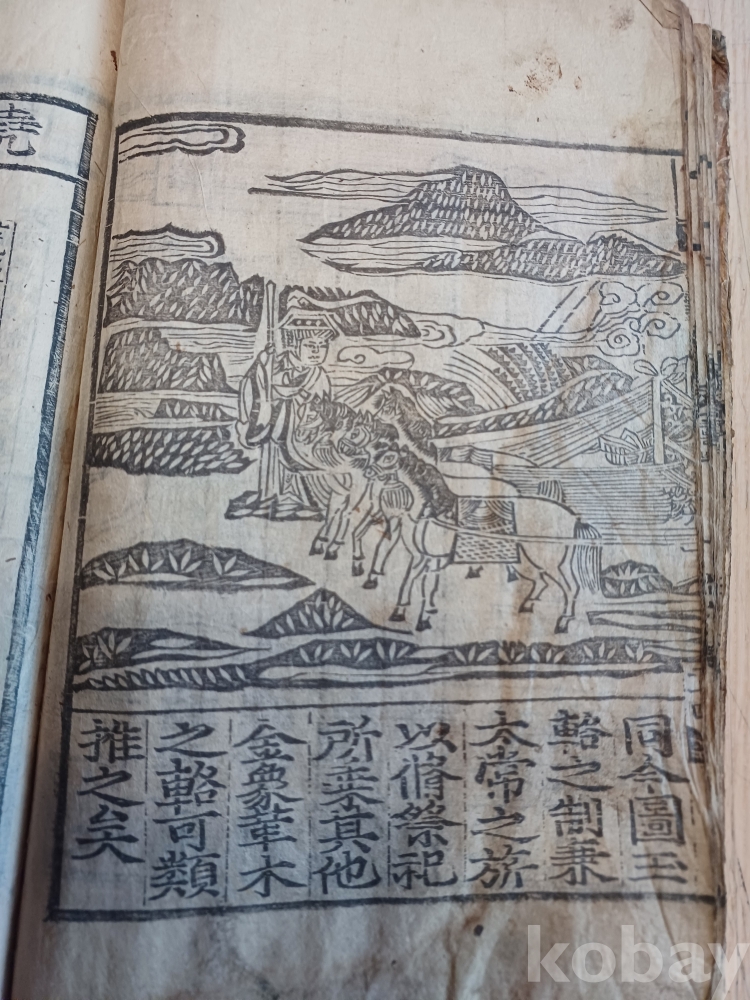 同今圖玉
輅之制兼
太常之旂
以脩祭祀
所乘其他
金象革木
之輅可類
推之矣
kobay